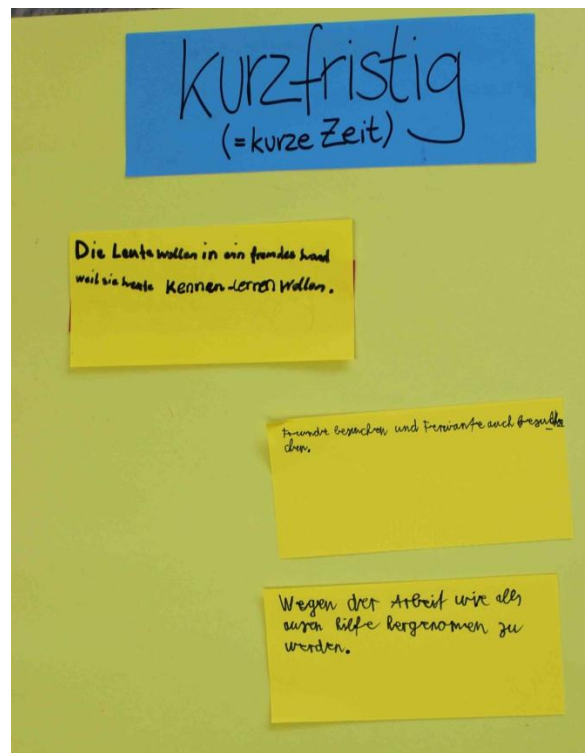 kurzfristig
(=kurze Zeit)
Die Leute wollen in ein fremdes Land
weil sie Leute Kennen-lernen wollen.
Freunde besuchen und Ferwante auch besu
chen.
Wegen der Arbeit wie als
ausen hilfe hergenomen zu
werden.